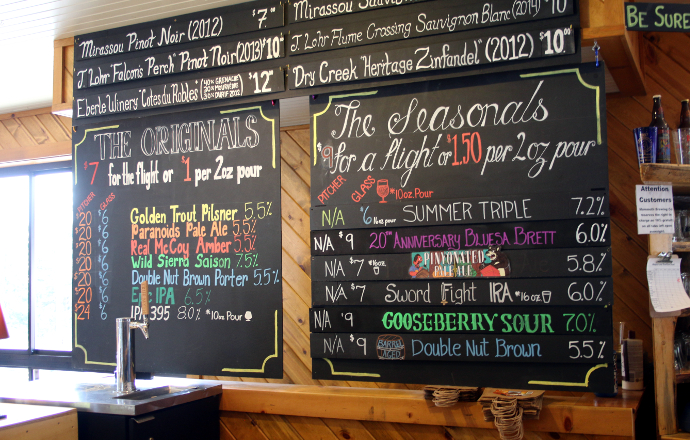 Mirassou Pinot Noir (2012) $7.00
J. Lohr Falcons Perch Pinot Noir (2013) $10.00
Eberle Winery "Cotes du Robles" $12.00
Mirassou Sauvignon
J. Lohr Flume Crossing Sauvignon Blanc (2014) $10
Dry Creek "Heritage Zinfandel" (2012) $10.00
Be Sure
THE ORIGINALS
$7 for the flight or $1 per 2oz pour
PITCHER GLASS
20 $6 Golden Trout Pilsner 5.5%
20 $6 Paranoids Pale Ale 5.5%
20 $6 Real McCoy Amber 5.5%
20 $6 Wild Sierra Saison 7.5%
20 $6 Double Nut Brown Porter 5.5%
20 $6 Epic IPA 6.5%
24 $6 IPA 395 8.0% *10oz Pour
The Seasonals
$9 for a flight or $1.50 per 2oz pour
PITCHER GLASS *10oz. Pour
N/A $6 16oz pour SUMMER TRIPLE 7.2%
N/A $9 20TH ANNIVERSARY BLUESA BRETT 6.0%
N/A $7 *16oz PINYONATED PALE ALE 5.8%
N/A $7 Sword Fight IRA *16oz 6.0%
N/A $9 GOOSEBERRY SOUR 7.0%
N/A $9 BARREL AGED Double Nut Brown 5.5%
Attention
Customers